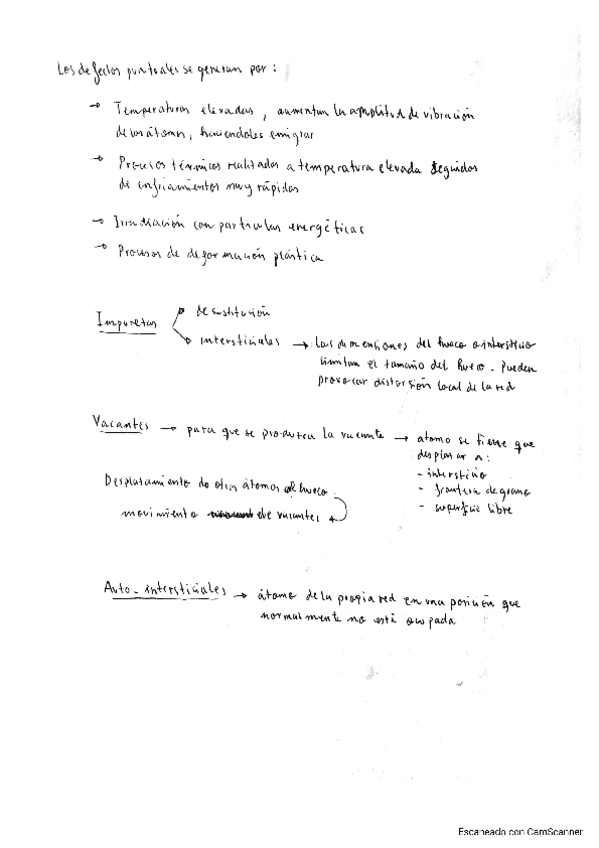 Los defectos puntuales se generan por :
→ Temperaturas elevadas, aumentan la amplitud de vibración
de los átomos, haciendoles emigrar
→ Procesos térmicos realizados a temperatura elevada seguidos
de enfriamientos muy rápidos
→ Irradiación con partículas energéticas
→ Procesos de deformación plástica
Impurezas
de sustitución
intersticiales → Las dimensiones del hueco o intersticio
limitan el tamaño del hueco. Pueden
provocar distorsión local de la red
Vacantes → para que se produzca la vacante → átomo se tiene que
desplazar a:
- intersticio
- frontera de grano
- superficie libre
Desplazamiento de otros átomos al hueco
movimiento de vacantes
Auto-intersticiales → átomo de la propia red en una posición que
normalmente no está ocupada
Escaneado con CamScanner